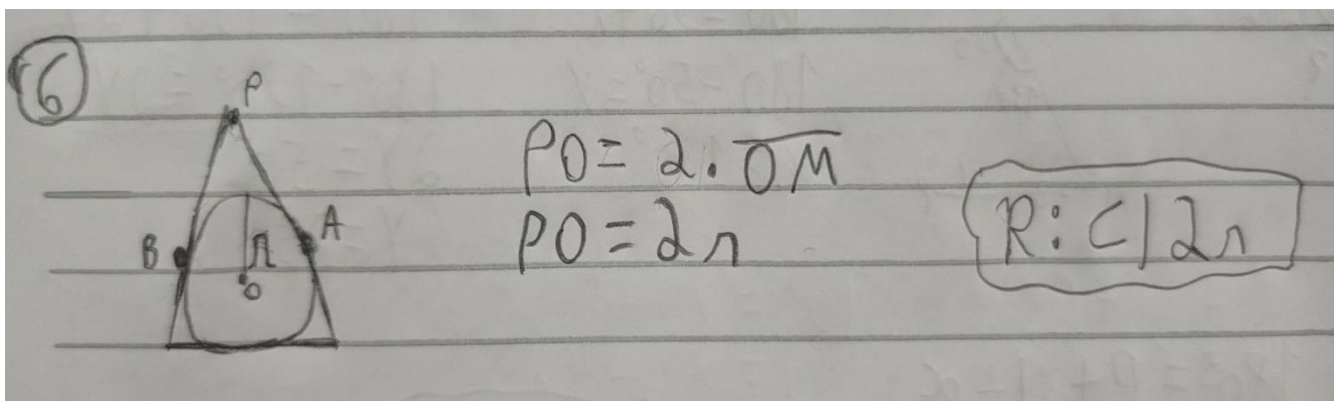 6
P
B
A
r
O
PO = 2 . OM
PO = 2r
R: C| 2r